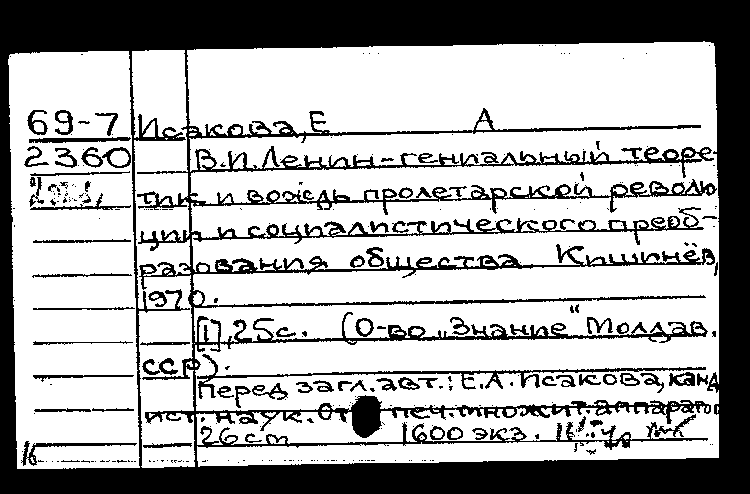 69-7 Исакова, Е А
2360 В.И.Ленин-гениальный теоре-
тик и вождь пролетарской револю
ции и социалистического преоб-
разования общества Кишинёв,
1970.
[1], 25с. (О-во „Знание“ Молдав.
ССР).
Перед загл. авт.: Е.А.Исакова, канд
ист. наук. От печ. множит. аппаратом
26cm 1600 экз.
16